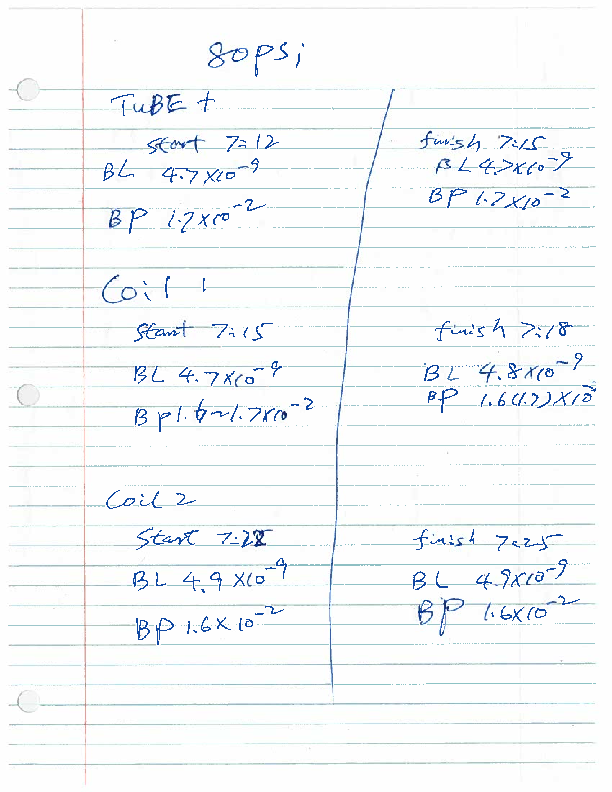 80psi
TUBE +
start 7:12
BL 4.7X10⁻⁹
BP 1.7X10⁻²
finish 7:15
BL 4.7X10⁻⁹
BP 1.7X10⁻²
Coil 1
Start 7:15
BL 4.7X10⁻⁹
BP 1.6~1.7X10⁻²
finish 7:18
BL 4.8X10⁻⁹
BP 1.6(1.7)X10⁻
Coil 2
Start
BL 4.9X10⁻⁹
BP 1.6X10⁻²
finish 7:25
BL 4.9X10⁻⁹
BP 1.6X10⁻²